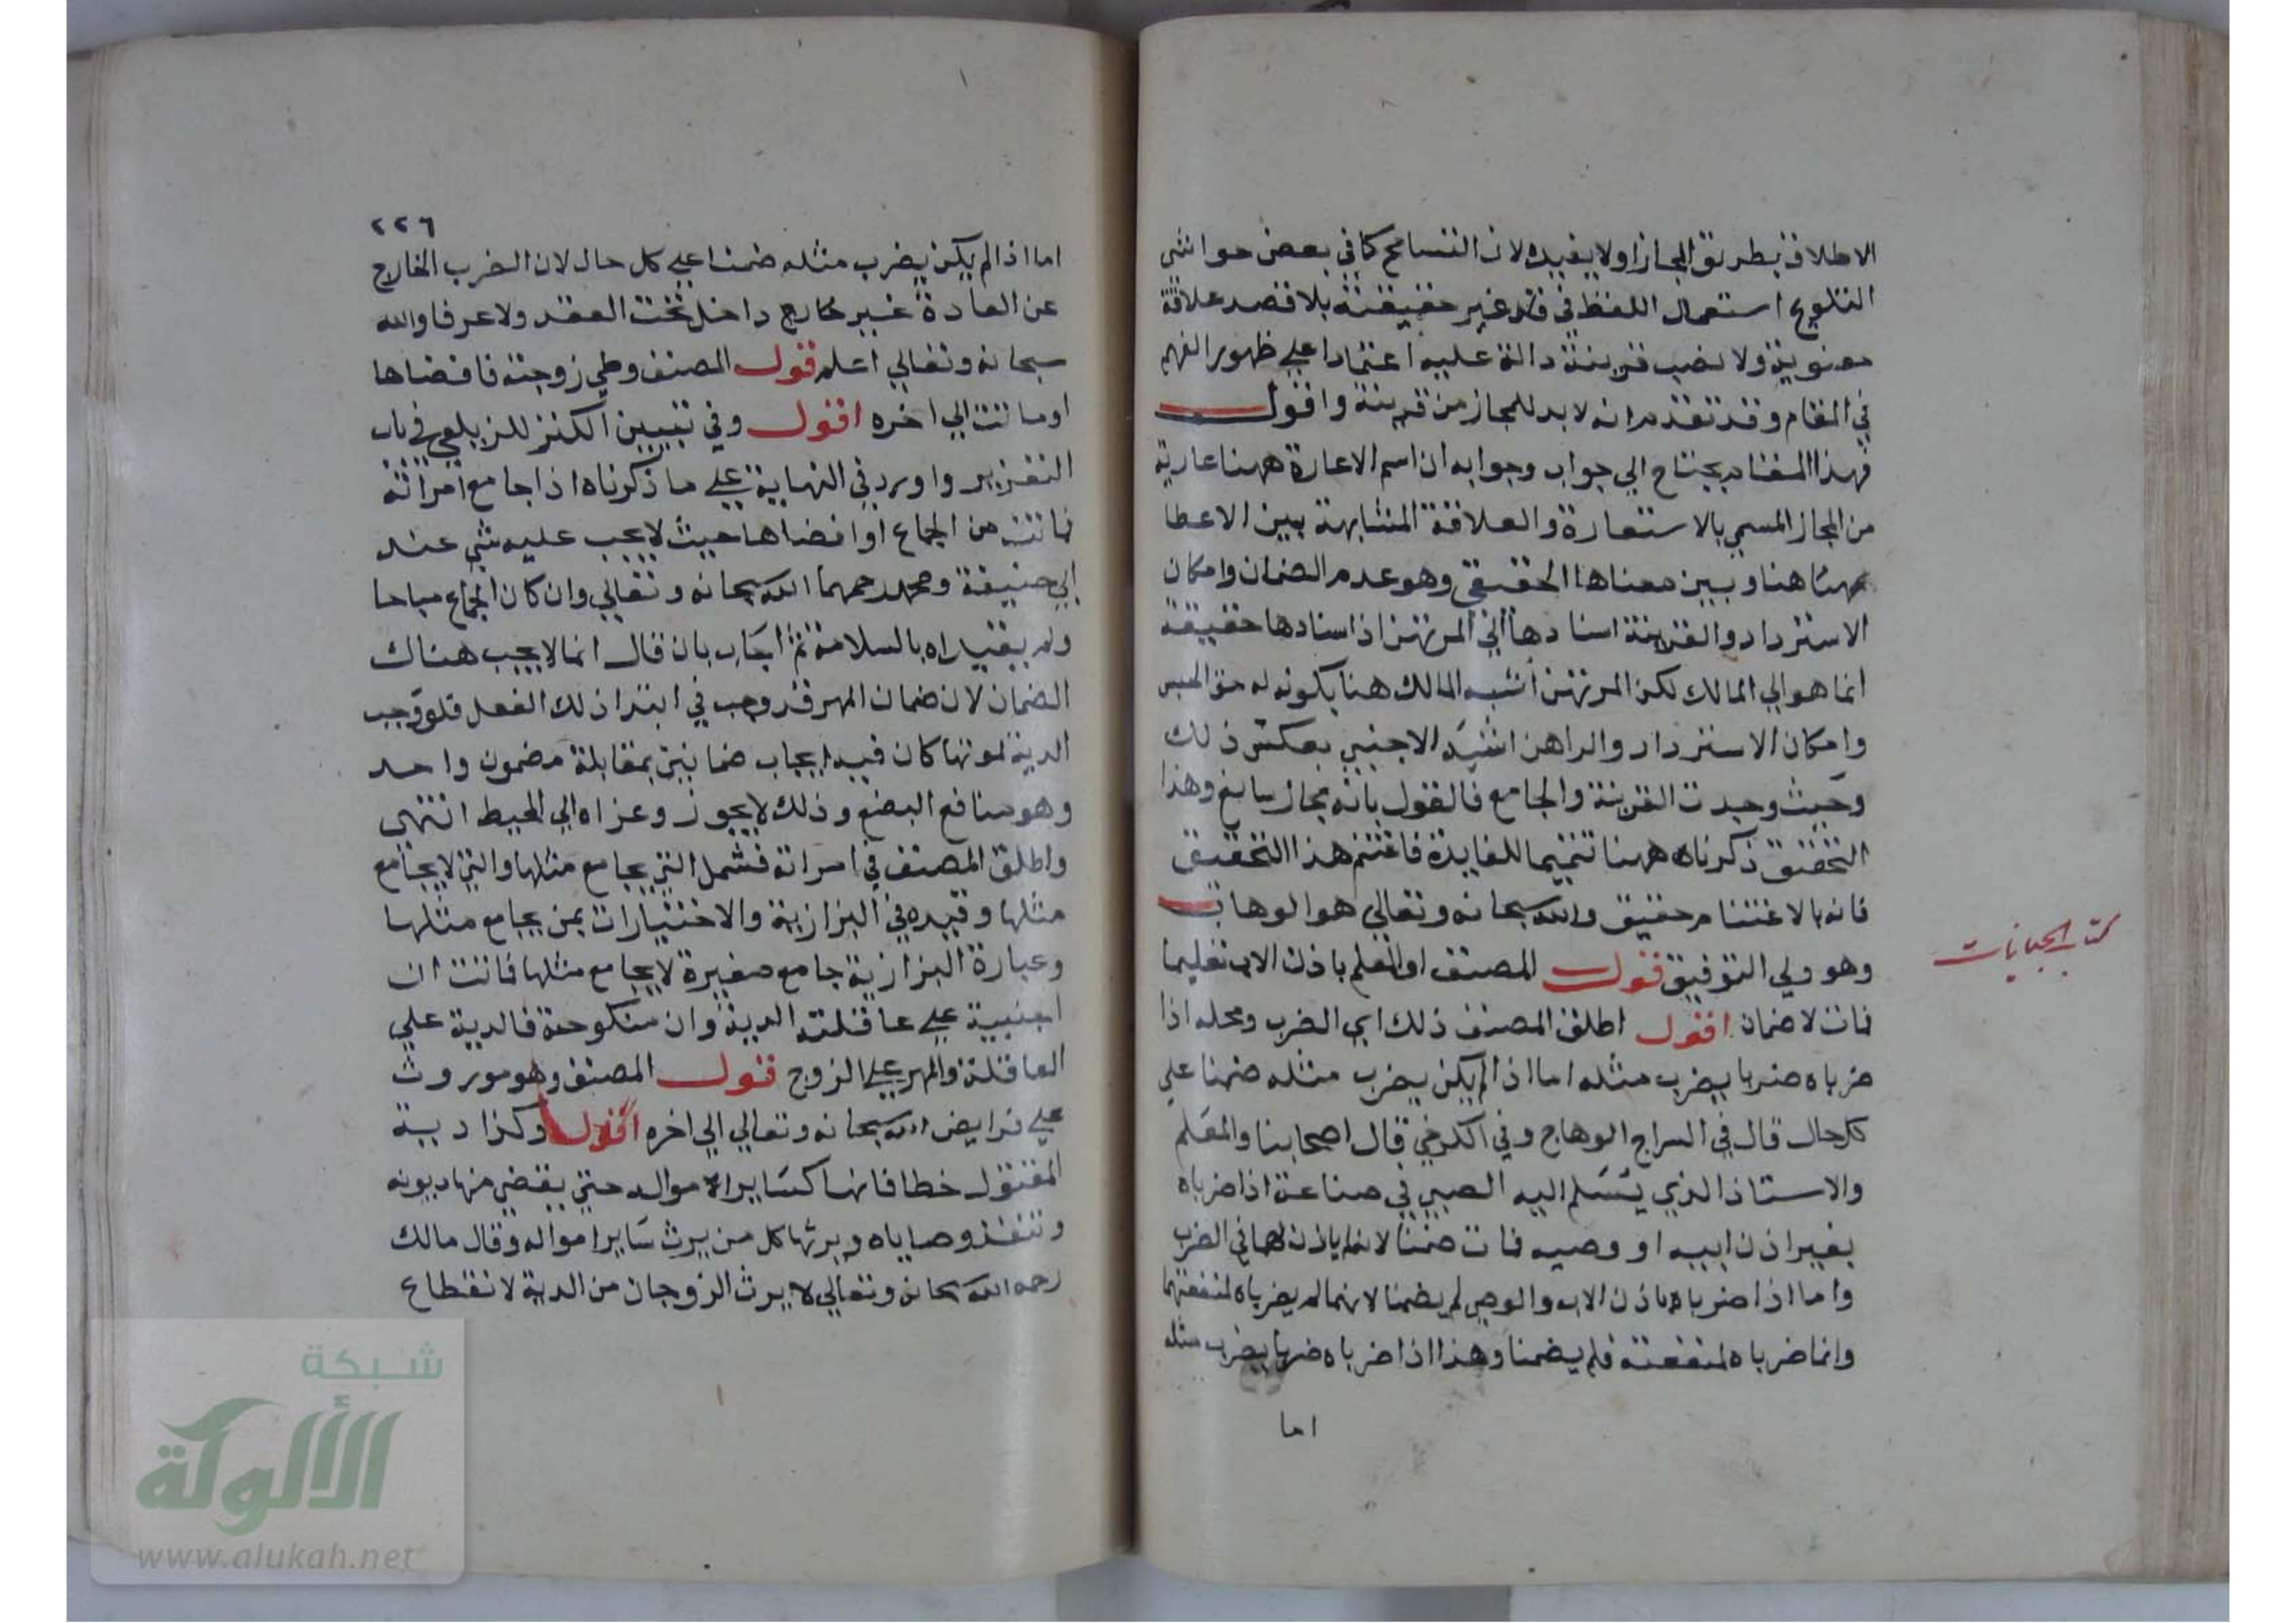 الاطلاق بطريق المجاز اولا يفيده لان التسامح كما في بعض حواشي
التلويح استعمال اللفظ في غير حقيقته بلا قصد علاقة
معنوية ولا نصب قرينة دالة عليه اعتمادا علي ظهور الفهم
في المقام وقد تقدم انه لا بد للمجاز من قرينة واقول
فهذا المقام يحتاج الي جواب وجوابه ان اسم الاعارة ههنا عارية
من المجاز المسمي بالاستعارة والعلاقة المشابهة بين الاعطا
ههنا وبين معناها الحقيقي وهو عدم الضمان وامكان
الاسترداد والقرينة اسنادها الي المرتهن اذ اسنادها حقيقة
انما هو الي المالك لكن المرتهن اشبه المالك هنا بكونه له حق الحبس
وامكان الاسترداد والراهن اشبه الاجنبي بعكس ذلك
وحيث وجدت القرينة والجامع فالقول بانه مجاز سايغ وهذا
التحقيق ذكرناه ههنا تتميما للفايدة فاغتنم هذا التحقيق
فانه بالاغتنام حقيق والله سبحانه وتعالي هو الوهاب
وهو ولي التوفيق قول المصنف او المعلم باذن الاب تعليما
فمات لا ضمان اقول اطلق المصنف ذلك اي الضرب ومحله اذا
ضرباه ضربا يضرب مثله اما اذا لم يكن يضرب مثله ضمنا علي
كل حال قال في السراج الوهاج وفي الكرخي قال اصحابنا والمعلم
والاستاذ الذي يتسلم اليه الصبي في صناعة اذا ضرباه
بغير اذن ابيه او وصيه فمات ضمنا لانه لم ياذن لهما في الضرب
واما اذا ضرباه باذن الاب والوصي لم يضمنا لانهما لم يضرباه لمنفعتهما
وانما ضرباه لمنفعته فلم يضمنا وهذا اذا ضرباه ضربا يضرب مثله
اما
كتاب الجنايات
٢٢٦
اما اذا لم يكن يضرب مثله ضمنا علي كل حال لان الضرب الخارج
عن العادة غير داخل تحت العقد ولا عرفا والله
سبحانه وتعالي اعلم قول المصنف وطي زوجته فافضاها
او ماتت الي اخره اقول وفي تبيين الكنز للزيلعي في باب
التعزير واورد في النهاية علي ما ذكرناه اذا جامع امراته
فماتت من الجماع او افضاها حيث لا يجب عليه شي عند
ابي حنيفة ومحمد رحمهما الله سبحانه وتعالي وان كان الجماع مباحا
ولم يقيداه بالسلامة ثم اجاب بان قال انما لا يجب هناك
الضمان لان ضمان المهر قد وجب في ابتدا ذلك الفعل فلو وجب
الدية لموتها كان فيه ايجاب ضمانين بمقابلة مضمون واحد
وهو منافع البضع وذلك لا يجوز وعزاه الي المحيط انتهي
واطلق المصنف في امراته فشمل التي يجامع مثلها والتي لا يجامع
مثلها وقيده في البزازية والاختيارات بمن يجامع مثلها
وعبارة البزازية جامع صغيرة لا يجامع مثلها فماتت ان
اجنبية علي عاقلته الدية وان منكوحة فالدية علي
العاقلة والمهر علي الزوج قول المصنف وهو موروث
علي فرايض الله سبحانه وتعالي الي اخره اقول وكذا دية
المقتول خطا فانها كساير امواله حتي يقضي منها ديونه
وتنفذ وصاياه ويرثها كل من يرث ساير امواله وقال مالك
رحمه الله سبحانه وتعالي لا يرث الزوجان من الدية لانقطاع
شبكة
الألوكة
www.alukah.net